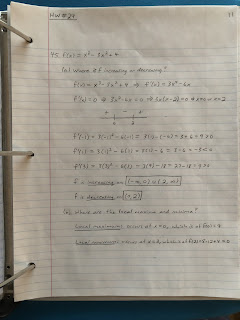 HW #24
11
45. f(x) = x³ - 3x² + 4
(a) Where is f increasing or decreasing?
f(x) = x³ - 3x² + 4 ⇒ f'(x) = 3x² - 6x
f'(x) = 0 ⇒ 3x² - 6x = 0 ⇒ 3x(x - 2) = 0 ⇒ x = 0 or x = 2
+ - +
0 2
f'(-1) = 3(-1)² - 6(-1) = 3(1) - (-6) = 3 + 6 = 9 > 0
f'(1) = 3(1)² - 6(1) = 3(1) - 6 = 3 - 6 = -3 < 0
f'(3) = 3(3)² - 6(3) = 3(9) - 18 = 27 - 18 = 9 > 0
f is increasing on (-∞, 0) ∪ (2, ∞)
f is decreasing on (0, 2)
(b) Where are the local maxima and minima?
Local maximum occurs at x = 0, which is at f(0) = 4
Local minimum occurs at x = 2, which is at f(2) = 8 - 12 + 4 = 0